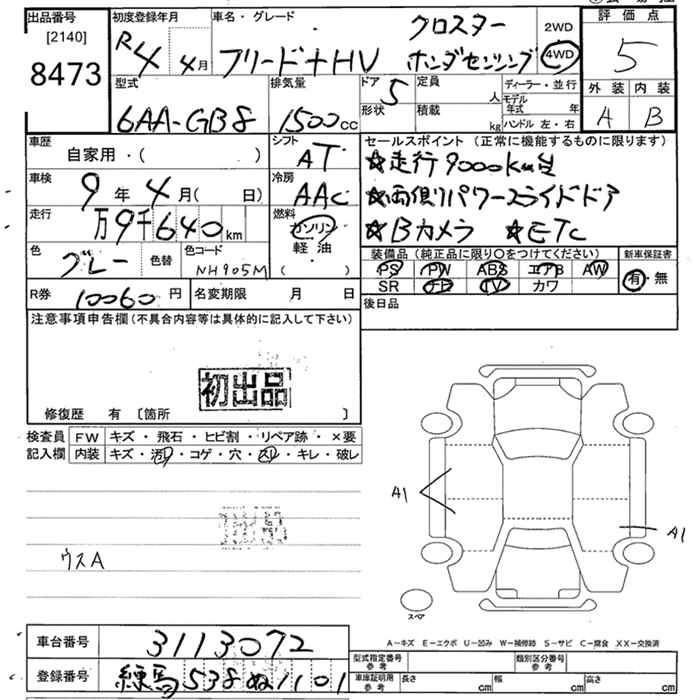 出品番号
[2140]
8473
初度登録年月
R4年4月
車名・グレード
クロスター
フリード+HV ホンダセンシング
2WD
4WD
評価点
5
型式
6AA-GB8
排気量
1500cc
ドア 5
形状
定員 人
積載 kg
ディーラー・並行
モデル年式 年
ハンドル 左・右
外装 内装
A B
車歴
自家用・( )
シフト
AT
セールスポイント (正常に機能するものに限ります)
★走行9000km台
★両側パワースライドドア
★Bカメラ ★ETC
車検
9年4月( 日)
冷房
AAC
走行
万9千640km
燃料
ガソリン
軽油
( )
色
グレー
色替
色コード
NH905M
装備品 (純正品に限り○をつけてください)
PS PW ABS エアB AW
SR ナビ TV カワ
新車保証書
有・無
R券 10060円
名変期限 月 日
後日品
注意事項申告欄 (不具合内容等は具体的に記入して下さい)
初出品
修復歴 有 [箇所 ]
検査員記入欄
FW キズ・飛石・ヒビ割・リペア跡・×要
内装 キズ・汚れ・コゲ・穴・スレ・キレ・破レ
出品
ウスA
A1
A1
スペア
A-キズ E-エクボ U-凹み W-補修跡 S-サビ C-腐食 XX-交換済
車台番号 3113072
登録番号 練馬538ぬ1101
型式指定番号 参考
類別区分番号 参考
車庫証明用 参考
長さ cm 幅 cm 高さ cm